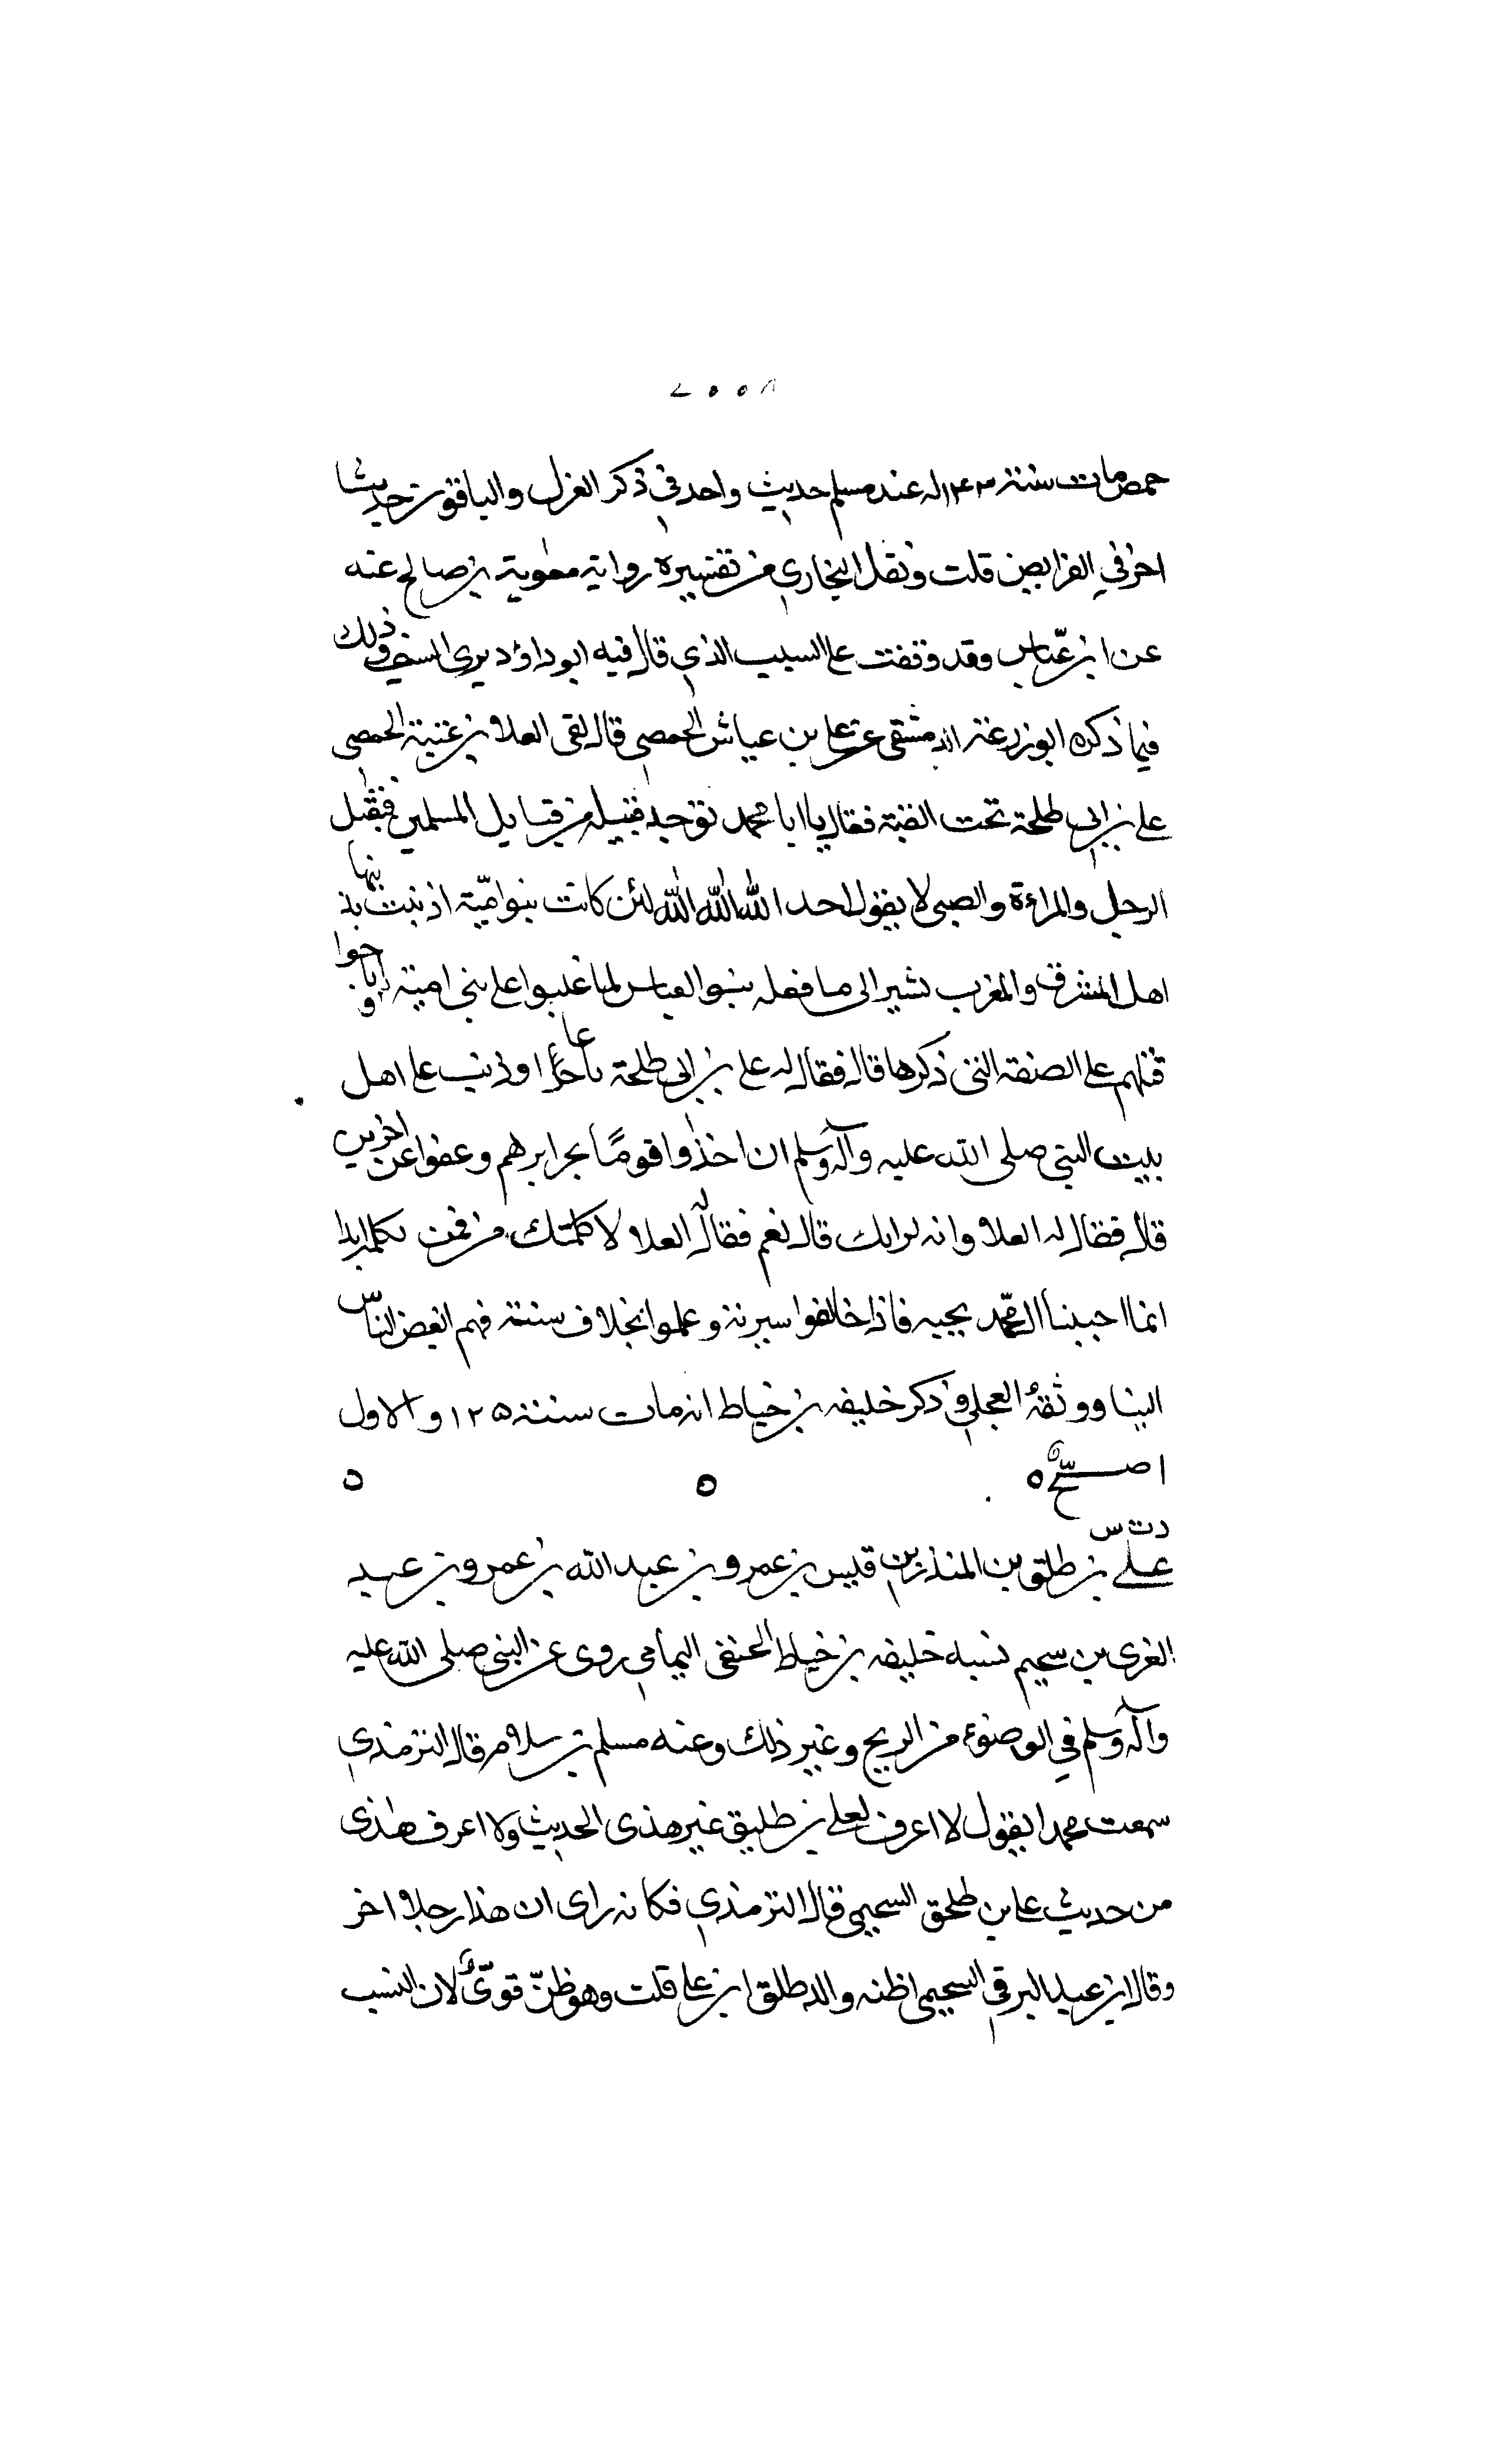 حمص مات سنة ١٤٣ له عند مسلم حديث واحد في ذكر العزل والباقون حديثا
اخر في الفرايض قلت ونقل البخاري من تفسيره رواية معوية بن صالح عنه
عن ابن عباس وقد وقفت على السبب الذي قال فيه ابو داؤد يرى السيف وذلك
فيما ذكره ابو زرعة الدمشقي عن علي بن عياش الحمصي قال لقي العلا بن عتبة الحمصي
علي بن ابي طلحة تحت القبة فقال يا ابا محمد توخذ قبيله من قبايل المسلمين فيقتل
الرجل والمراءة والصبي لا يقول احد الله الله الله لئن كانت بنو امّية اذنبت بذنبها
اهل المشرق والمغرب يشير الى ما فعله بنو العباس لما غلبوا على بني امية واباحوا
قتلهم على الصفة التي ذكرها قال فقال له علي بن ابي طلحة يا عاجز او ذنب على اهل
بيت النبي صلى الله عليه وآله وسلم ان اخذوا قومًا بجرايرهم وعفوا عن اخرين
قال فقال له العلا وانه لرايك قال نعم فقال له العلا لا كلمتك من فمي بكلمة ابدا
انما احببنا ال محمّد بحبه فاذا خالفوا سيرته وعملوا بخلاف سنته فهم ابغض الناس
الينا ووثقه العجلي وذكر خليفه بن خياط انه مات سنة ١٢٥ والاول
اصحّ ٥ ٥ ٥
د ت س
علي بن طلق بن المنذر بن قيس بن عمرو بن عبد الله بن عمرو بن عبد
العزى بن سحيم نسبه خليفه بن خياط الحنفي اليمامي روى عن النبي صلى الله عليه
وآله وسلم في الوضوء من الريح وغير ذلك وعنه مسلم بن سلام قال الترمذي
سمعت محمدا يقول لا اعرف لعلي بن طليق غير هذى الحديث ولا اعرف هذى
من حديث علي بن طلحق السحيمي قال الترمذي فكانه راى ان هذا رجلا اخر
وقال ابن عبد البر في السحيمي اظنه والد طلق ابن علي قلت وهو ظنّ قوىّ لان النسب